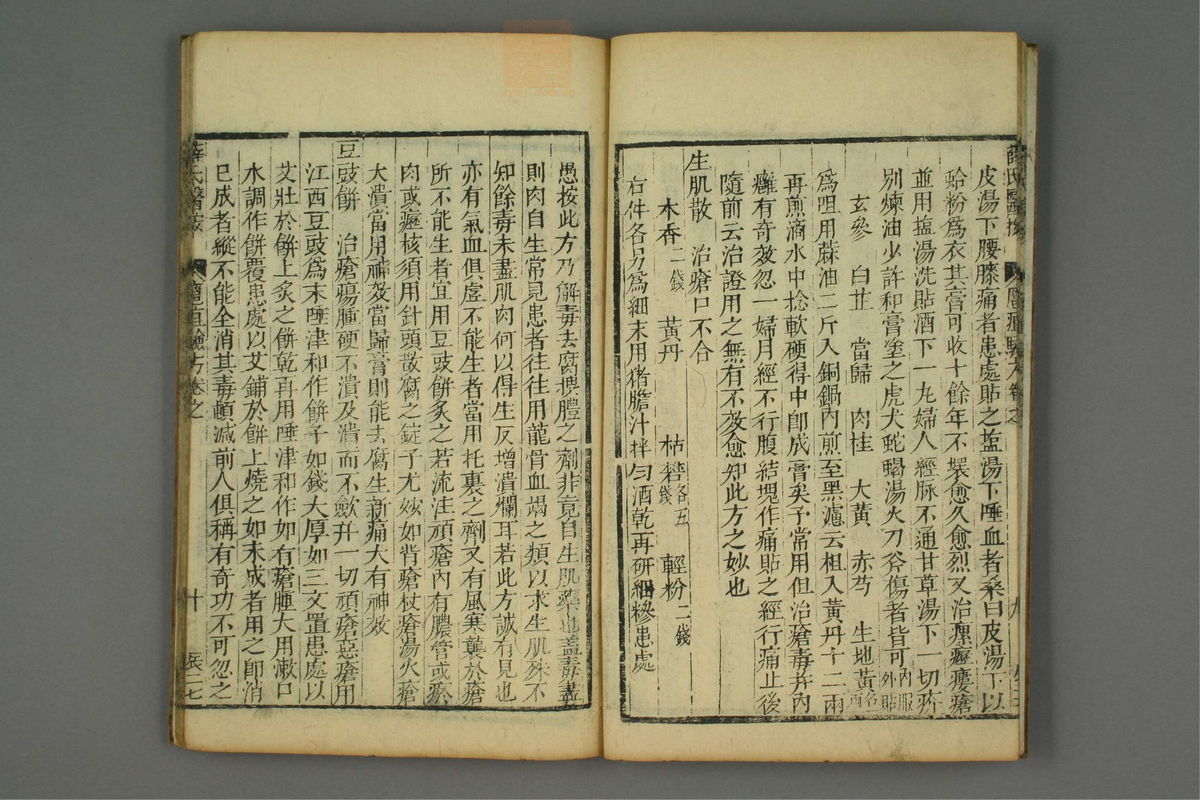 皮湯下腰膝痛者患處貼之盐湯下唾血者桑白皮湯下以
蛤粉爲衣其膏可收十餘年不壞愈久愈烈又治瘰癧癭瘡
並用盐湯洗貼酒下一丸婦人經脉不通甘草湯下一切疥
別煉油少許和膏塗之虎犬蛇蝎湯火刀斧傷者皆可内服外貼
玄參 白芷 當歸 肉桂 大黄 赤芍 生地黄各一兩
爲咀用蔴油二斤入銅鍋内煎至黑濾去柤入黄丹十二兩
再煎滴水中捻軟硬得中卽成膏矣予常用但治瘡毒并内
癰有奇效忽一婦月經不行腹結塊作痛貼之經行痛止後
隨前云治證用之無有不效愈知此方之妙也
生肌散 治瘡口不合
木香二錢 黄丹 枯礬各五錢 輕粉二錢
右件各另爲細末用猪膽汁拌匀洒乾再研細糝患處
薛氏醫按 外科經驗方卷之 十
愚按此方乃解毒去腐搜膿之劑非竟自生肌藥也盖毒盡
則肉自生常見患者往往用龍骨血竭之類以求生肌殊不
知餘毒未盡肌肉何以得生反增潰爛耳若此方誠有見也
亦有氣血俱虛不能生者當用托裏之劑又有風寒襲於瘡
所不能生者宜用豆豉餅灸之若流注頑瘡内有膿管或瘀
肉或瘰核須用針頭散腐之錠子尤妙如背瘡杖瘡湯火瘡
大潰當用神效當歸膏則能去腐生新痛大有神效
豆豉餅 治瘡瘍腫硬不潰及潰而不斂并一切頑瘡惡瘡用
江西豆豉爲末唾津和作餅子如錢大厚如三文置患處以
艾壯於餅上灸之餅乾再用唾津和作如有瘡腫大用漱口
水調作餅覆患處以艾鋪於餅上燒之如未成者用之卽消
已成者縱不能全消其毒頓減前人俱稱有奇功不可忽之